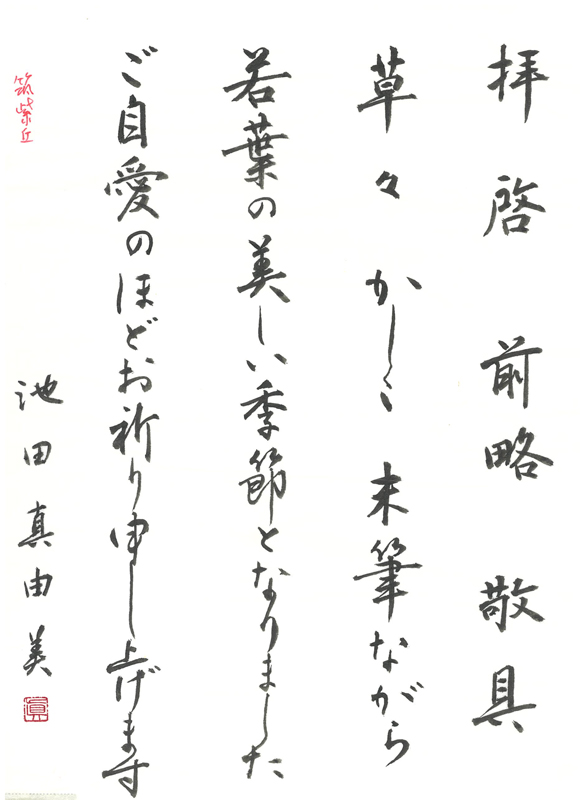 拝啓 前略 敬具
草々 かしく 末筆ながら
若葉の美しい季節となりました
ご自愛のほどお祈り申し上げます
池田真由美
眞
筑紫丘